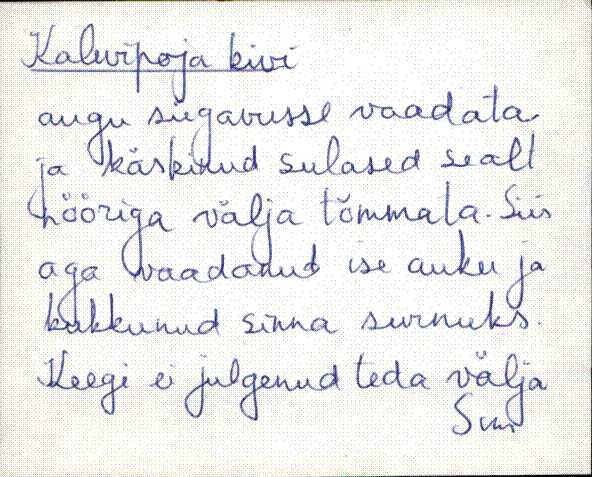 Kalevipoja kivi
augu sügavusse vaadata
ja käskinud sulased sealt
nööriga välja tõmmata. Siis
aga vaadanud ise auku ja
kukkunud sinna surnuks.
Keegi ei julgenud teda välja